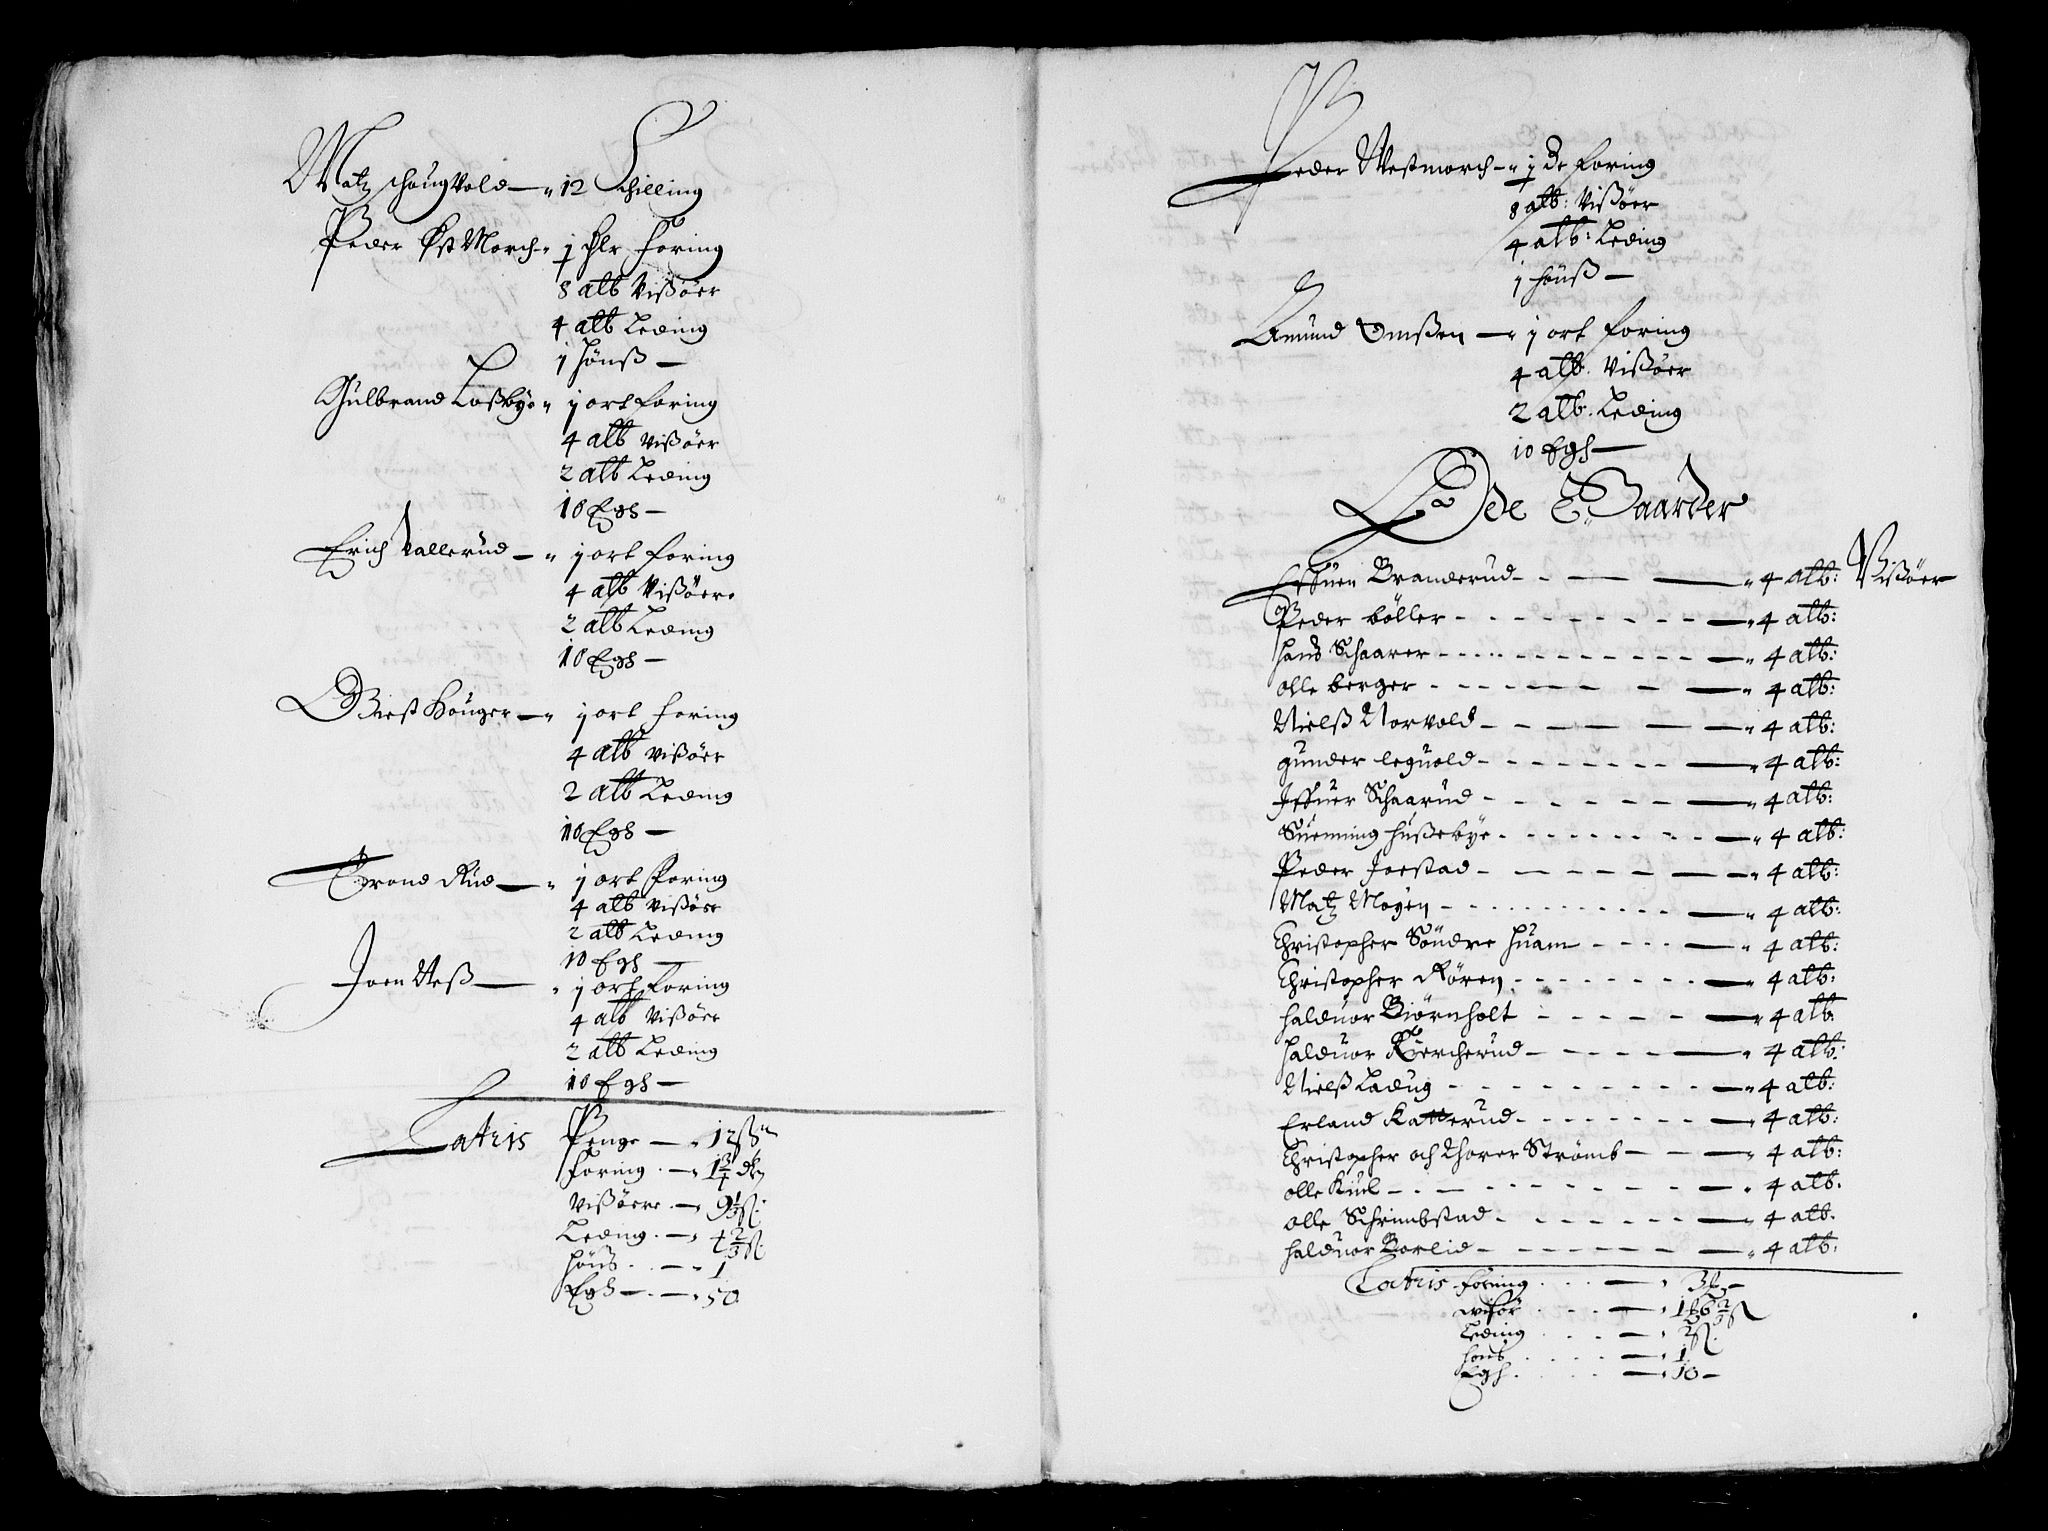 Matz Hougvold — 12 Schilling
Peder Østmorch - 1 dlr Foring
8 alb Vißøer
4 alb Leding
1 Hønß —
Gulbrand Loßbye 1 ort foring
4 alb Vißøer
2 alb Leding
10 Egh —
Erich Tallerud — 1 ort foring
4 alb Vißøer
2 alb Leding
10 Egh —
Gest Houger — 1 ort foring
4 alb Vißøer
2 alb Leding
10 Egh —
Trond Rud — 1 ort Foring
4 alb Vißøer
2 alb Leding
10 Egh —
Joen Neß — 1 ort Foring
4 alb Vißøer
2 alb Leding
10 Egh —
Latris Penge — 12 ß
Foring — 1 3/4 dlr
Vißøere — 9 1/3 ß
Leding — 4 2/3 ß
Hønß — 1
Egh — 50
Peder Westmorch — 1 Dr foring
8 alb: Vißøer
4 alb: Leding
1 hønß —
Amund Omßen — 1 ort foring
4 alb. Vißøer
2 alb. Leding
10 Egh —
Øde Gaarder
Effuen Branderud — 4 alb: Vißøer
Peder bøller — 4 alb:
Hans Schaarer — 4 alb:
olle berger — 4 alb:
Nielß Norvold — 4 alb:
gunder leguold — 4 alb:
Jffuer Schaarud — 4 alb:
Suenning Hußebye — 4 alb:
Peder Joestad — 4 alb:
Matz Møyen — 4 alb:
Christopher Søndre Huam — 4 alb:
Christopher Røren — 4 alb:
Halduor Biørnholt — 4 alb
Halduor Kiercherud — 4 alb:
Nielß Ladug — 4 alb:
Erland Katterud — 4 alb:
Christopher och Thorer Strømb — 4 alb:
olle Kiul — 4 alb.
olle Schrimbstad — 4 alb.
Halduor Borlid — 4 alb:
Latris Foring
wisør
Leding — 2 ß
høns — 1
Egh — 10 —